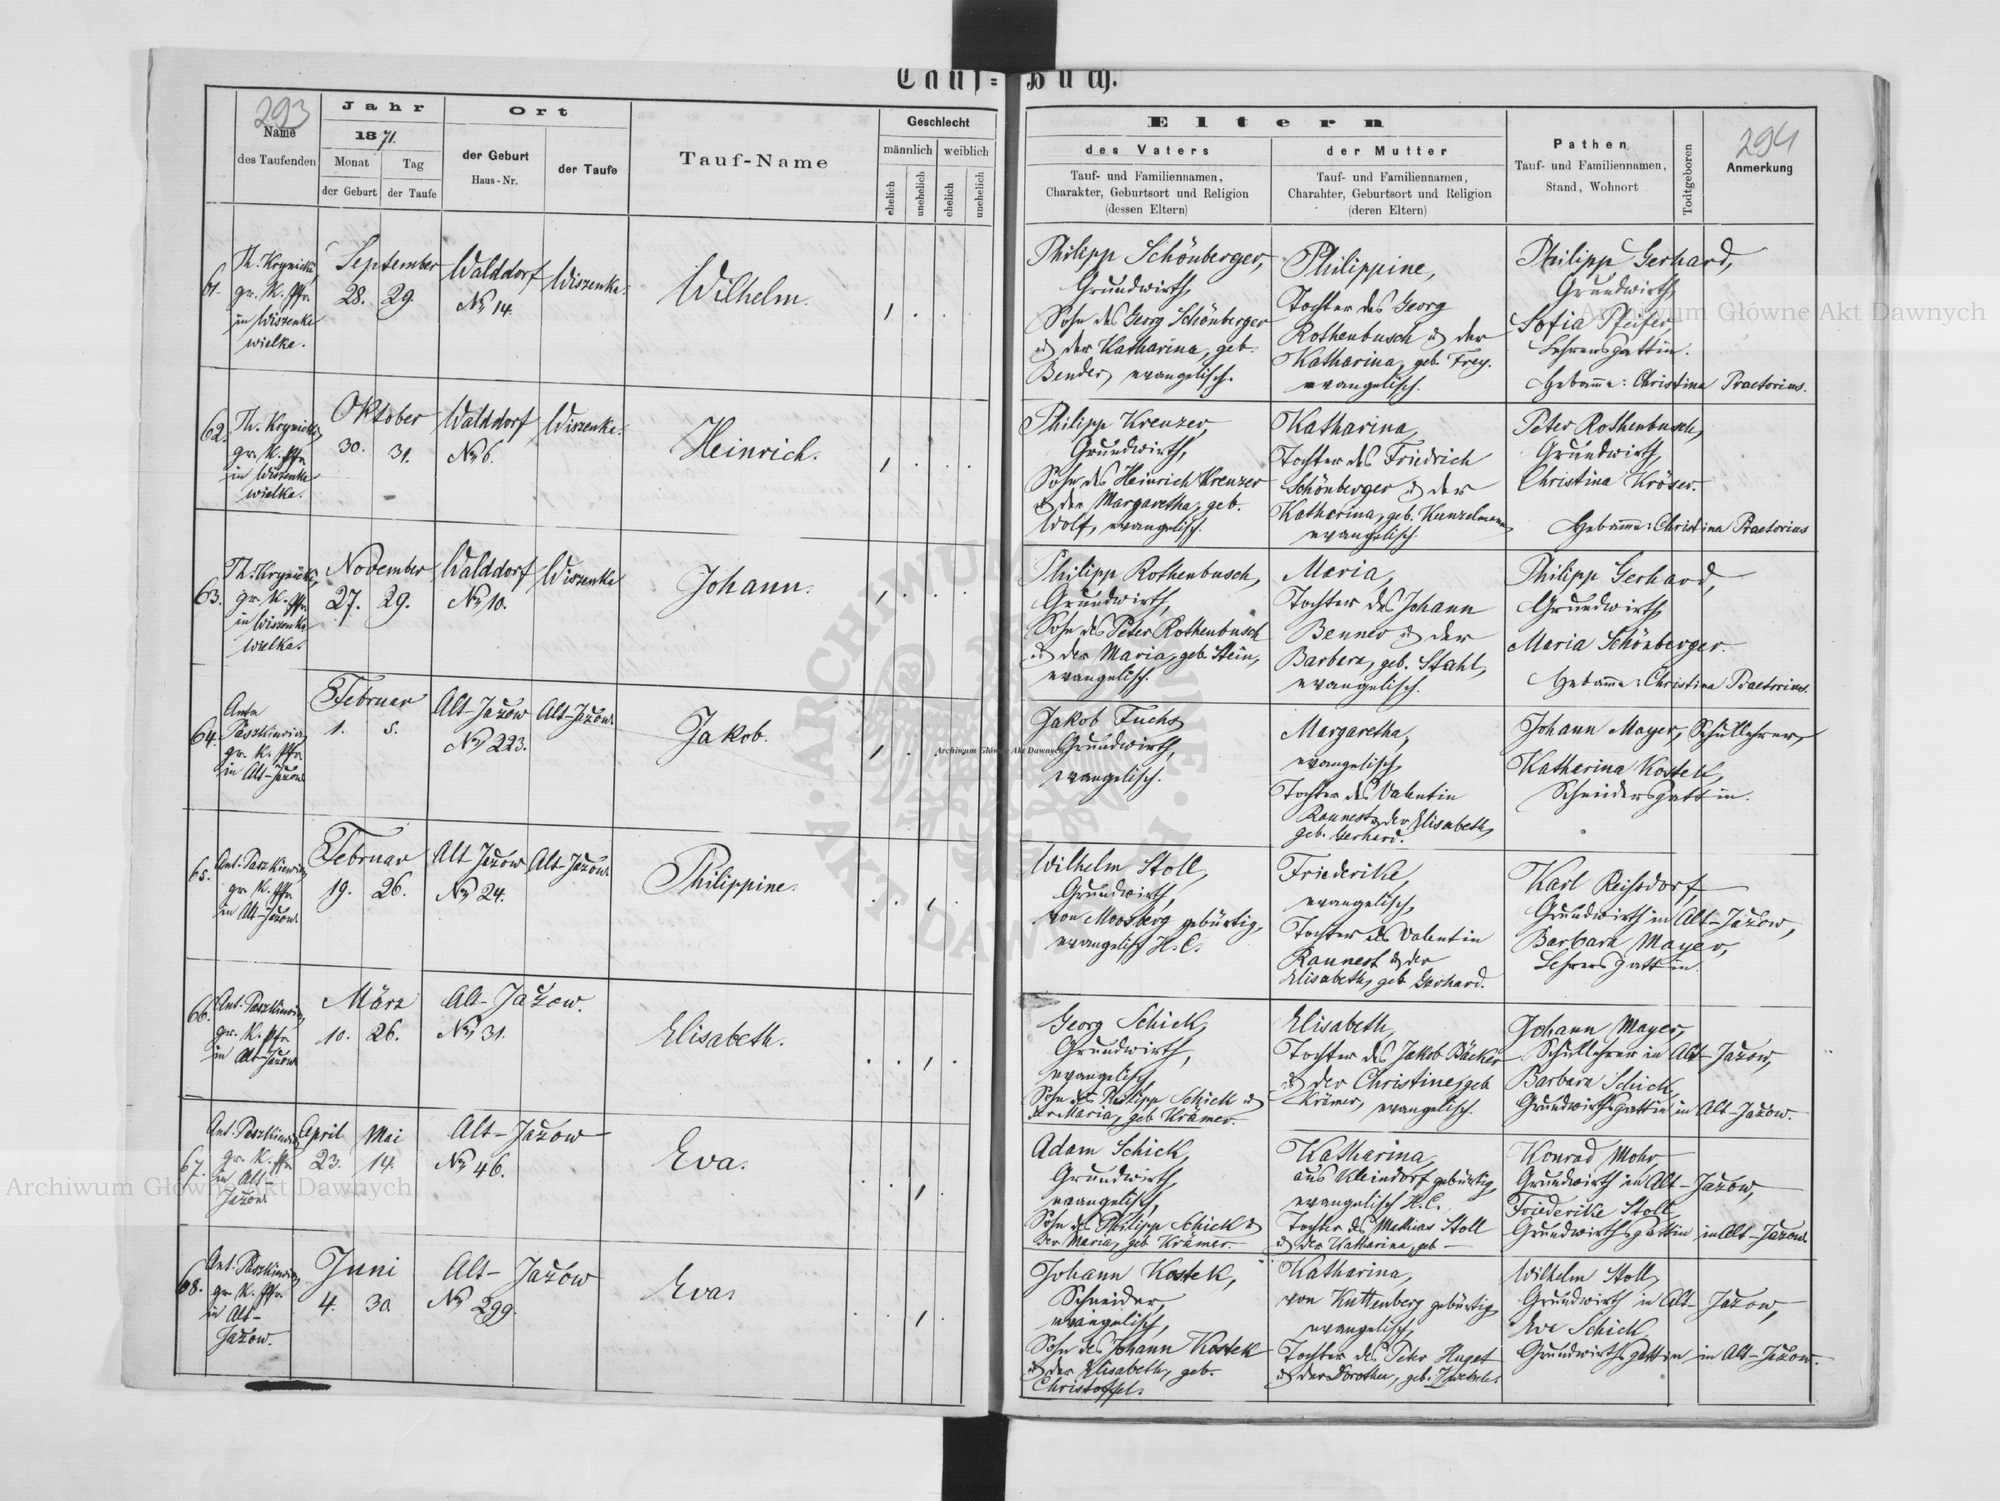 Tauf-Buch.
293
Name
des Taufenden
Jahr
1871.
Monat
Tag
der Geburt
der Taufe
Ort
der Geburt
Haus-Nr.
der Taufe
Tauf-Name
Geschlecht
männlich
weiblich
ehelich
unehelich
ehelich
unehelich
Eltern
des Vaters
Tauf- und Familiennamen,
Charakter, Geburtsort und Religion
(dessen Eltern)
der Mutter
Tauf- und Familiennamen,
Charakter, Geburtsort und Religion
(deren Eltern)
Pathen
Tauf- und Familiennamen,
Stand, Wohnort
Todtgeboren
294
Anmerkung
61.
Th. Krynicki
gr. K. Pfr.
in Wiszenka
wielka.
September
28. 29.
Walddorf
No 14.
Wiszenka.
Wilhelm.
Philipp Schönberger,
Grundwirth,
Sohn des Georg Schönberger
u der Katharina, geb.
Bender, evangelisch.
Philippine,
Tochter des Georg
Rothenbusch u der
Katharina, geb. Frey.
evangelisch.
Philipp Gerhard,
Grundwirth,
Sofia Pfeifer,
Lehrersgattin.
Hebamme: Christina Praetorius.
62.
Th. Krynicki,
gr. K. Pfr.
in Wiszenka
wielka.
Oktober
30. 31.
Walddorf
No 6.
Wiszenka.
Heinrich.
Philipp Kreuzer,
Grundwirth,
Sohn des Heinrich Kreuzer
u der Margaretha, geb.
Wolf, evangelisch.
Katharina,
Tochter des Friedrich
Schönberger u der
Katharina, geb. Kunzelmann
evangelisch.
Peter Rothenbusch,
Grundwirth,
Christina Kröser.
Hebamme: Christina Praetorius
63.
Th. Krynicki,
gr. K. Pfr.
in Wiszenka
wielka.
November
27. 29.
Walddorf
No 10.
Wiszenka
Johann.
Philipp Rothenbusch,
Grundwirth,
Sohn des Peter Rothenbusch
u der Maria, geb. Stein,
evangelisch.
Maria,
Tochter des Johann
Benner u der
Barbara, geb. Stahl,
evangelisch.
Philipp Gerhard,
Grundwirth,
Maria Schönberger.
Hebamme: Christina Praetorius.
64.
Paszkiewicz
gr. K. Pfr.
in Alt-Jażow
Februar
1. 5.
Alt-Jażow
No 223.
Alt-Jażow.
Jakob.
Jakob Fuchs,
Grundwirth,
evangelisch.
Margaretha,
evangelisch,
Tochter des Valentin
u der Elisabeth,
geb. Gerhard.
Johann Mayer, Schullehrer,
Katharina Kostek,
Schneidersgattin.
65.
Ant. Paszkiewicz
gr. K. Pfr.
in Alt-Jażow.
Februar
19. 26.
Alt Jażow
No 24.
Alt-Jażow.
Philippine.
Wilhelm Stoll,
Grundwirth,
von Moosberg gebürtig,
evangelisch H. C.
Friederike,
evangelisch,
Tochter des Valentin
u der
Elisabeth, geb Gerhard.
Karl Reichsdorf,
Grundwirth in Alt-Jażow,
Barbara Mayer,
Lehrersgattin.
66.
Ant. Paszkiewicz
gr. K. Pfr.
in Alt-Jażow
März
10. 26.
Alt-Jażow.
No 31.
Elisabeth.
Georg Schick,
Grundwirth,
evangelisch,
Sohn des Philipp Schick u
der Maria, geb Krämer.
Elisabeth,
Tochter des Jakob Bäcker
u der Christine, geb
Krämer, evangelisch.
Johann Mayer,
Schullehrer in Alt-Jażow,
Barbara Schick,
Grundwirthsgattin in Alt-Jażow.
67.
Ant. Paszkiewicz
gr. K. Pfr
in Alt-
Jażow
April Mai
23. 14.
Alt-Jażow
No 46.
Eva.
Adam Schick,
Grundwirth,
evangelisch,
Sohn des Philipp Schick u
der Maria, geb. Krämer.
Katharina,
aus Kleindorf gebürtig,
evangelisch H. C.
Tochter des Mathias Stoll
u der Katharina, geb —
Konrad Mohr
Grundwirth in Alt-Jażow,
Friederike Stoll,
Grundwirthsgattin in Alt-Jażow.
68.
Ant. Paszkiewicz
gr. K. Pfr
in Alt-
Jażow.
Juni
4. 30.
Alt-Jażow
No 299.
Eva.
Johann Kostek,
Schneider,
evangelisch,
Sohn des Johann Kostek
u der Elisabeth, geb.
Christoffel.
Katharina,
von Kuttenberg gebürtig,
evangelisch,
Tochter des Peter Huget
u der Dorothea, geb.
Wilhelm Stoll,
Grundwirth in Alt-Jażow,
Eva Schick,
Grundwirthsgattin in Alt-Jażow.
Archiwum Główne Akt Dawnych
Archiwum Główne Akt Dawnych
Archiwum Główne Akt Dawnych
ARCHIWUM GŁÓWNE AKT DAWNYCH